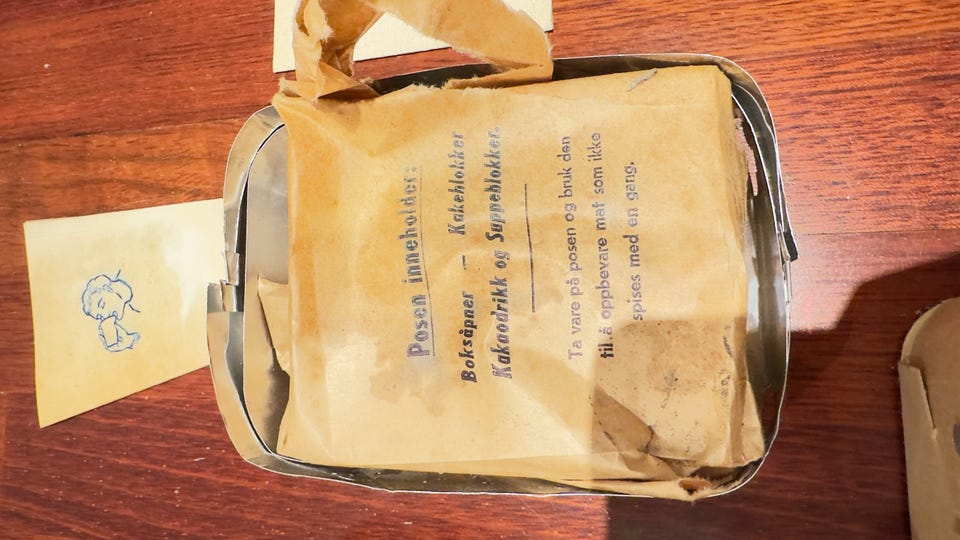 Posen inneholder:
Boksåpner — Kakeblokker
Kakaodrikk og Suppeblokker.
Ta vare på posen og bruk den
til å oppbevare mat som ikke
spises med en gang.